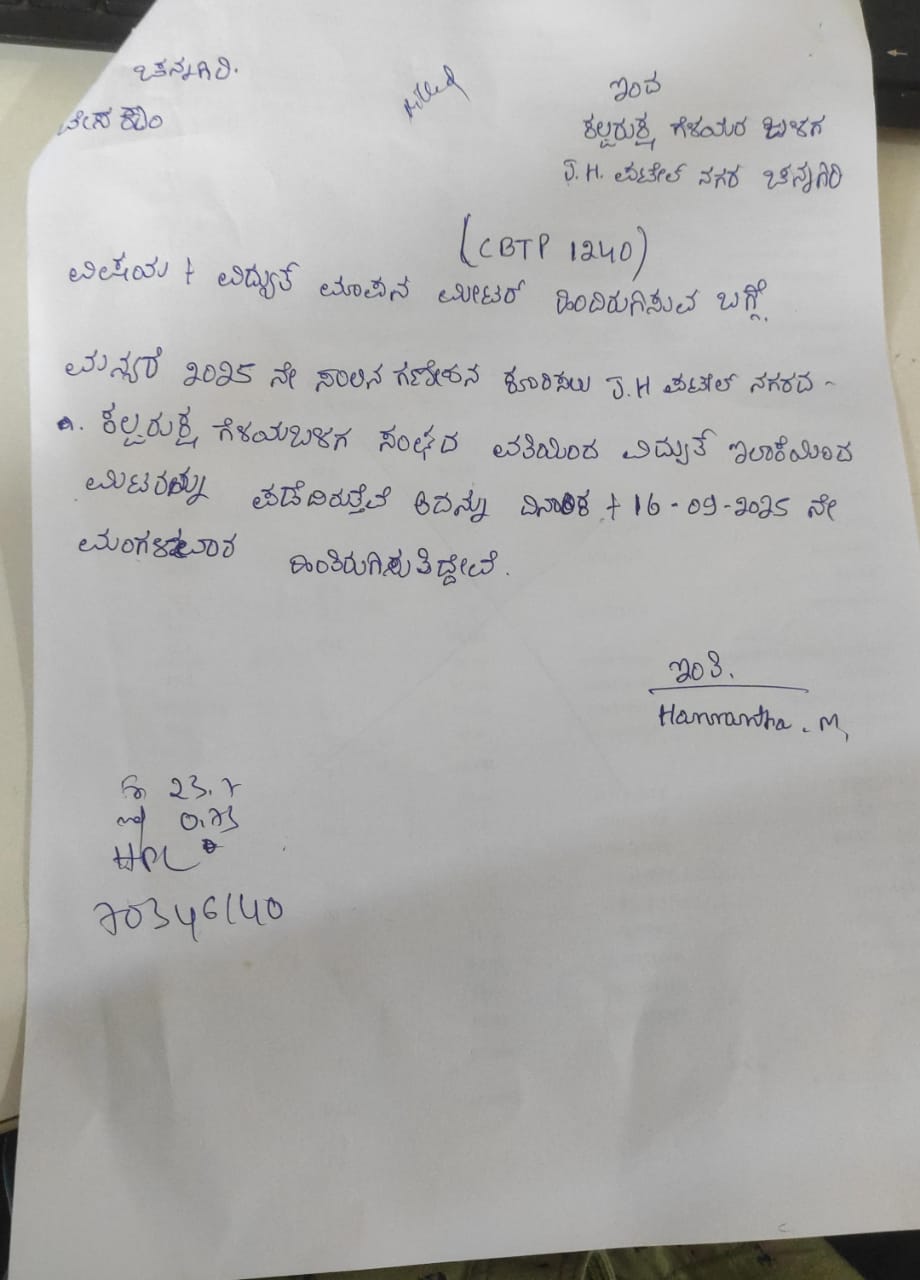 ಚನ್ನಗಿರಿ.
ಬೇಸ್ಕಾಂ
ಇಂದ
ಕಲ್ಪರುಕ್ಷ ಗೆಳಯರ ಬಳಗ
J.H. ಪಟೇಲ್ ನಗರ ಚನ್ನಗಿರಿ
(CBTP 1240)
ವಿಷಯ + ವಿದ್ಯುತ್ ಮಾಪನ ಮೀಟರ್ ಹಿಂದಿರುಗಿಸುವ ಬಗ್ಗೆ.
ಮನ್ಯರೆ 2025 ನೇ ಸಾಲಿನ ಗಣೇಶನ ಕೂರಿಸಲು J.H ಪಟೇಲ್ ನಗರದ -
ಕಲ್ಪರುಕ್ಷ ಗೆಳಯಬಳಗ ಸಂಘದ ವತಿಯಿಂದ ವಿದ್ಯುತ್ ಇಲಾಕೆಯಿಂದ
ಮಿಟರನ್ನು ಪಡೆದಿರುತ್ತೆವೆ ಅದನ್ನು ದಿನಾಂಕ + 16-09-2025 ನೇ
ಮಂಗಳವಾರ ಹಿಂತಿರುಗಿಸುತಿದ್ದೇವೆ.
ಇಂತಿ.
Hanmantha . M,
23.7
0.73
HPL
70346140